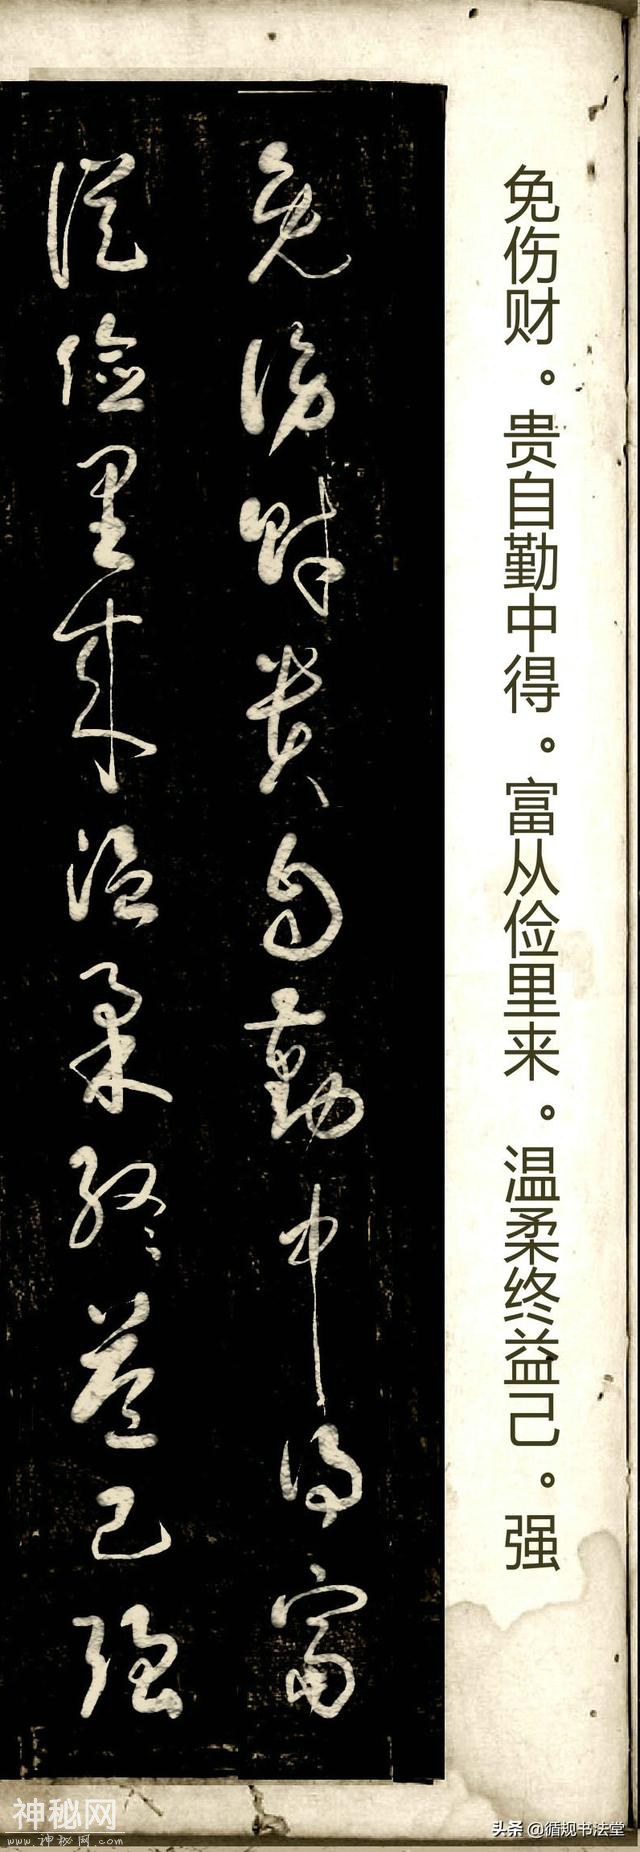 免伤财。贵自勤中得。富从俭里来。温柔终益己。强
免傷財貴自勤中得富
從儉里来温柔終益己强
神秘网
www.神秘网.com
头条 @循规书法堂